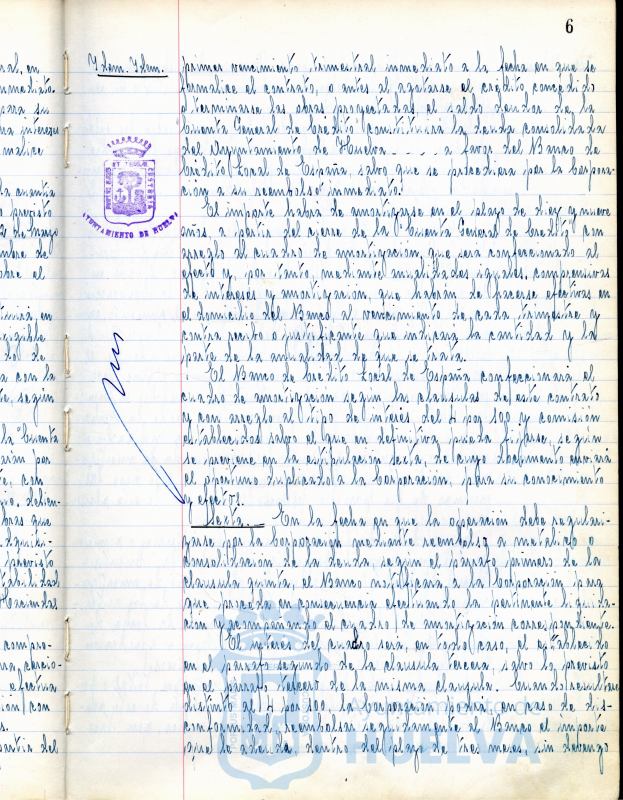 6
Idem. Idem.
primer vencimiento trimestral inmediato a la fecha en que se
formalice el contrato, o antes al agotarse el crédito concedido
o terminarse las obras proyectadas, el saldo deudor de la
Cuenta General de Crédito constituirá la deuda consolidada
del Ayuntamiento de Huelva a favor del Banco de
Crédito Local de España, salvo que se procediera por la Corpora-
ción a su reembolso inmediato.
El importe habrá de amortizarse en el plazo de diez y nueve
años, a partir del cierre de la "Cuenta General de Crédito" con
arreglo al cuadro de amortización, que será confeccionado al
efecto y, por tanto, mediante anualidades iguales, comprensivas
de intereses y amortización, que habrán de hacerse efectivas en
el domicilio del Banco, al vencimiento de cada trimestre y
contra recibo o justificante que indicara la cantidad y la
parte de la anualidad de que se trata.
El Banco de Crédito Local de España confeccionará el
cuadro de amortización según las clausulas de este contrato
y con arreglo al tipo de interés del 4 por 100 y comisión
establecidos salvo el que en definitiva pueda fijarse, según
se previene en la estipulación sexta, de cuyo documento enviará
el oportuno duplicado a la Corporación, para su conocimiento
y efectos.
Sexta.— En la fecha en que la operación deba regulari-
zarse por la Corporación mediante reembolso a metálico o
consolidación de la deuda, según el párrafo primero de la
clausula quinta, el Banco notificará a la Corporación para
que proceda en consecuencia efectuando la pertinente liquida-
ción y acompañando el cuadro de amortización correspondiente.
El interés del cuadro será, en todo caso, el establecido
en el párrafo segundo de la clausula tercera, salvo lo previsto
en el párrafo tercero de la misma clausula. Cuando resultare
distinto al 4 por 100, la Corporación podrá, en caso de dis-
conformidad, reembolsar seguidamente al Banco el importe
que le adeuda, dentro del plazo de tres meses, sin devengo
AYUNTAMIENTO DE HUELVA
Ayuntamiento de
HUELVA